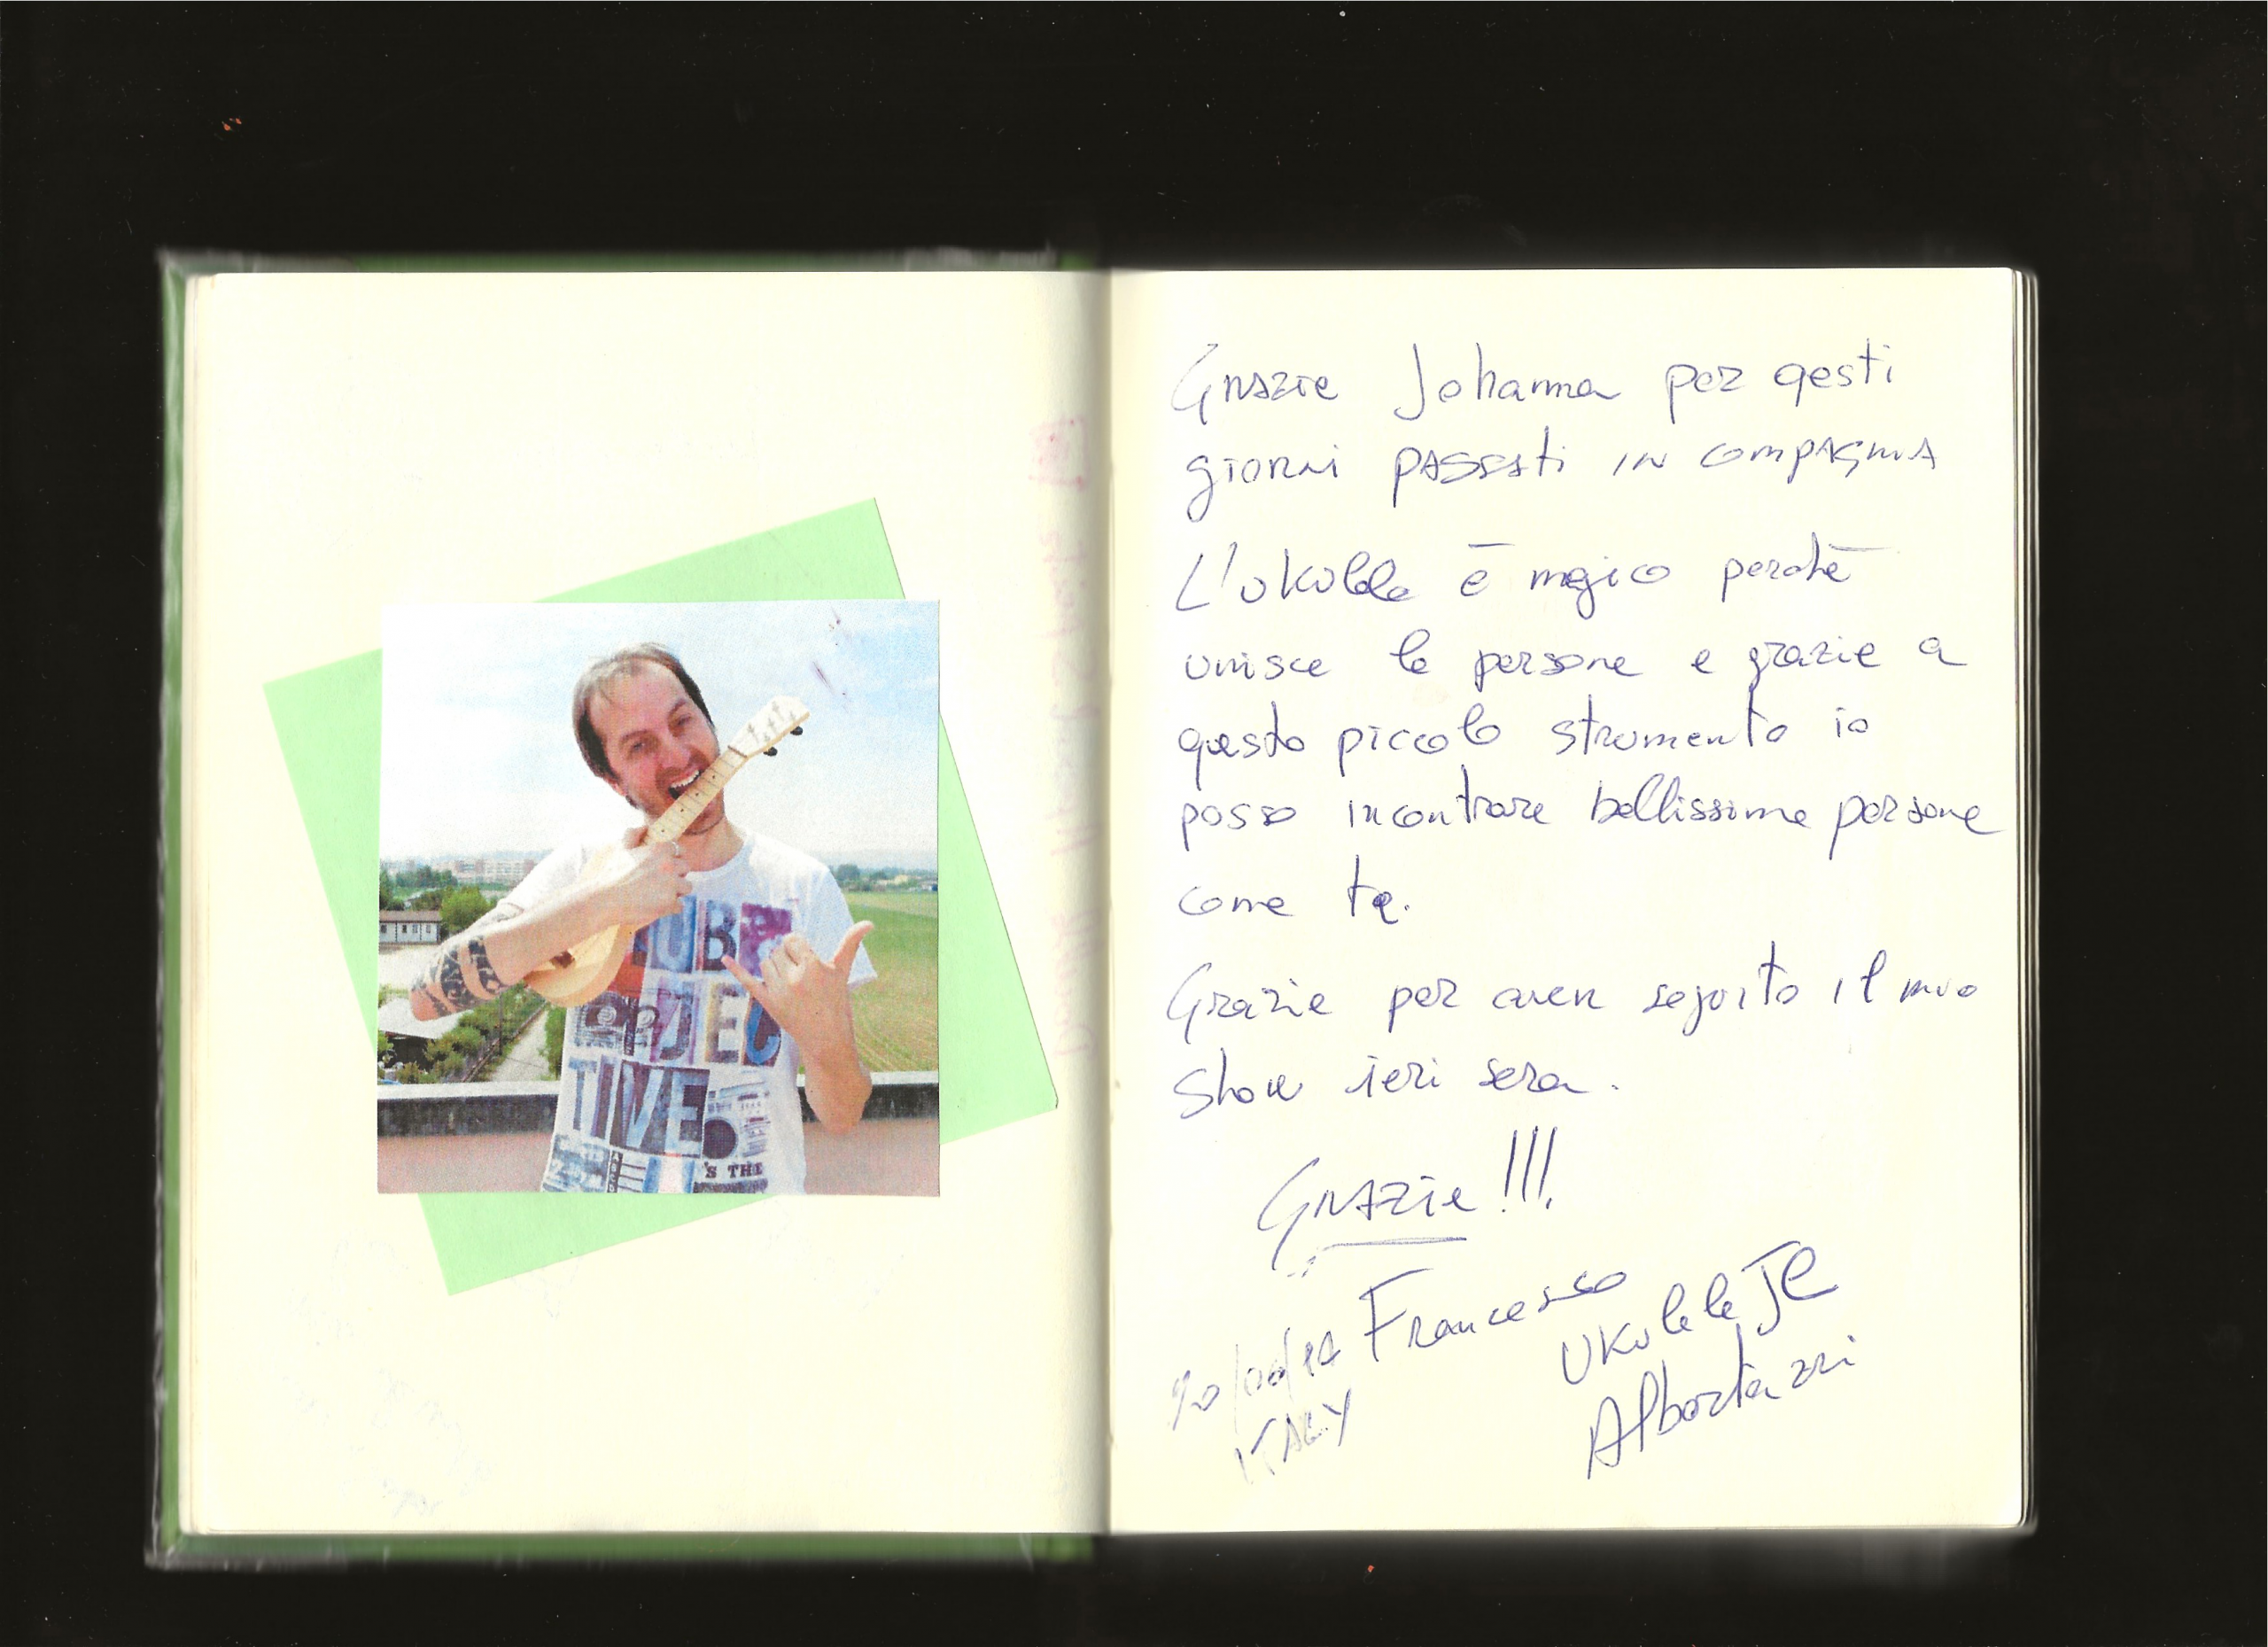 UBR
OBJEC
TIVE
'S THE
Grazie Johanna per qesti
giorni passati in compagnia
L'ukulele è magico perchè
unisce le persone e grazie a
questo piccolo strumento io
posso incontrare bellissime persone
come te.
Grazie per aver seguito il mio
show ieri sera.
Grazie!!!
Francesco
Ukulele JE
Albertazzi
ITALY